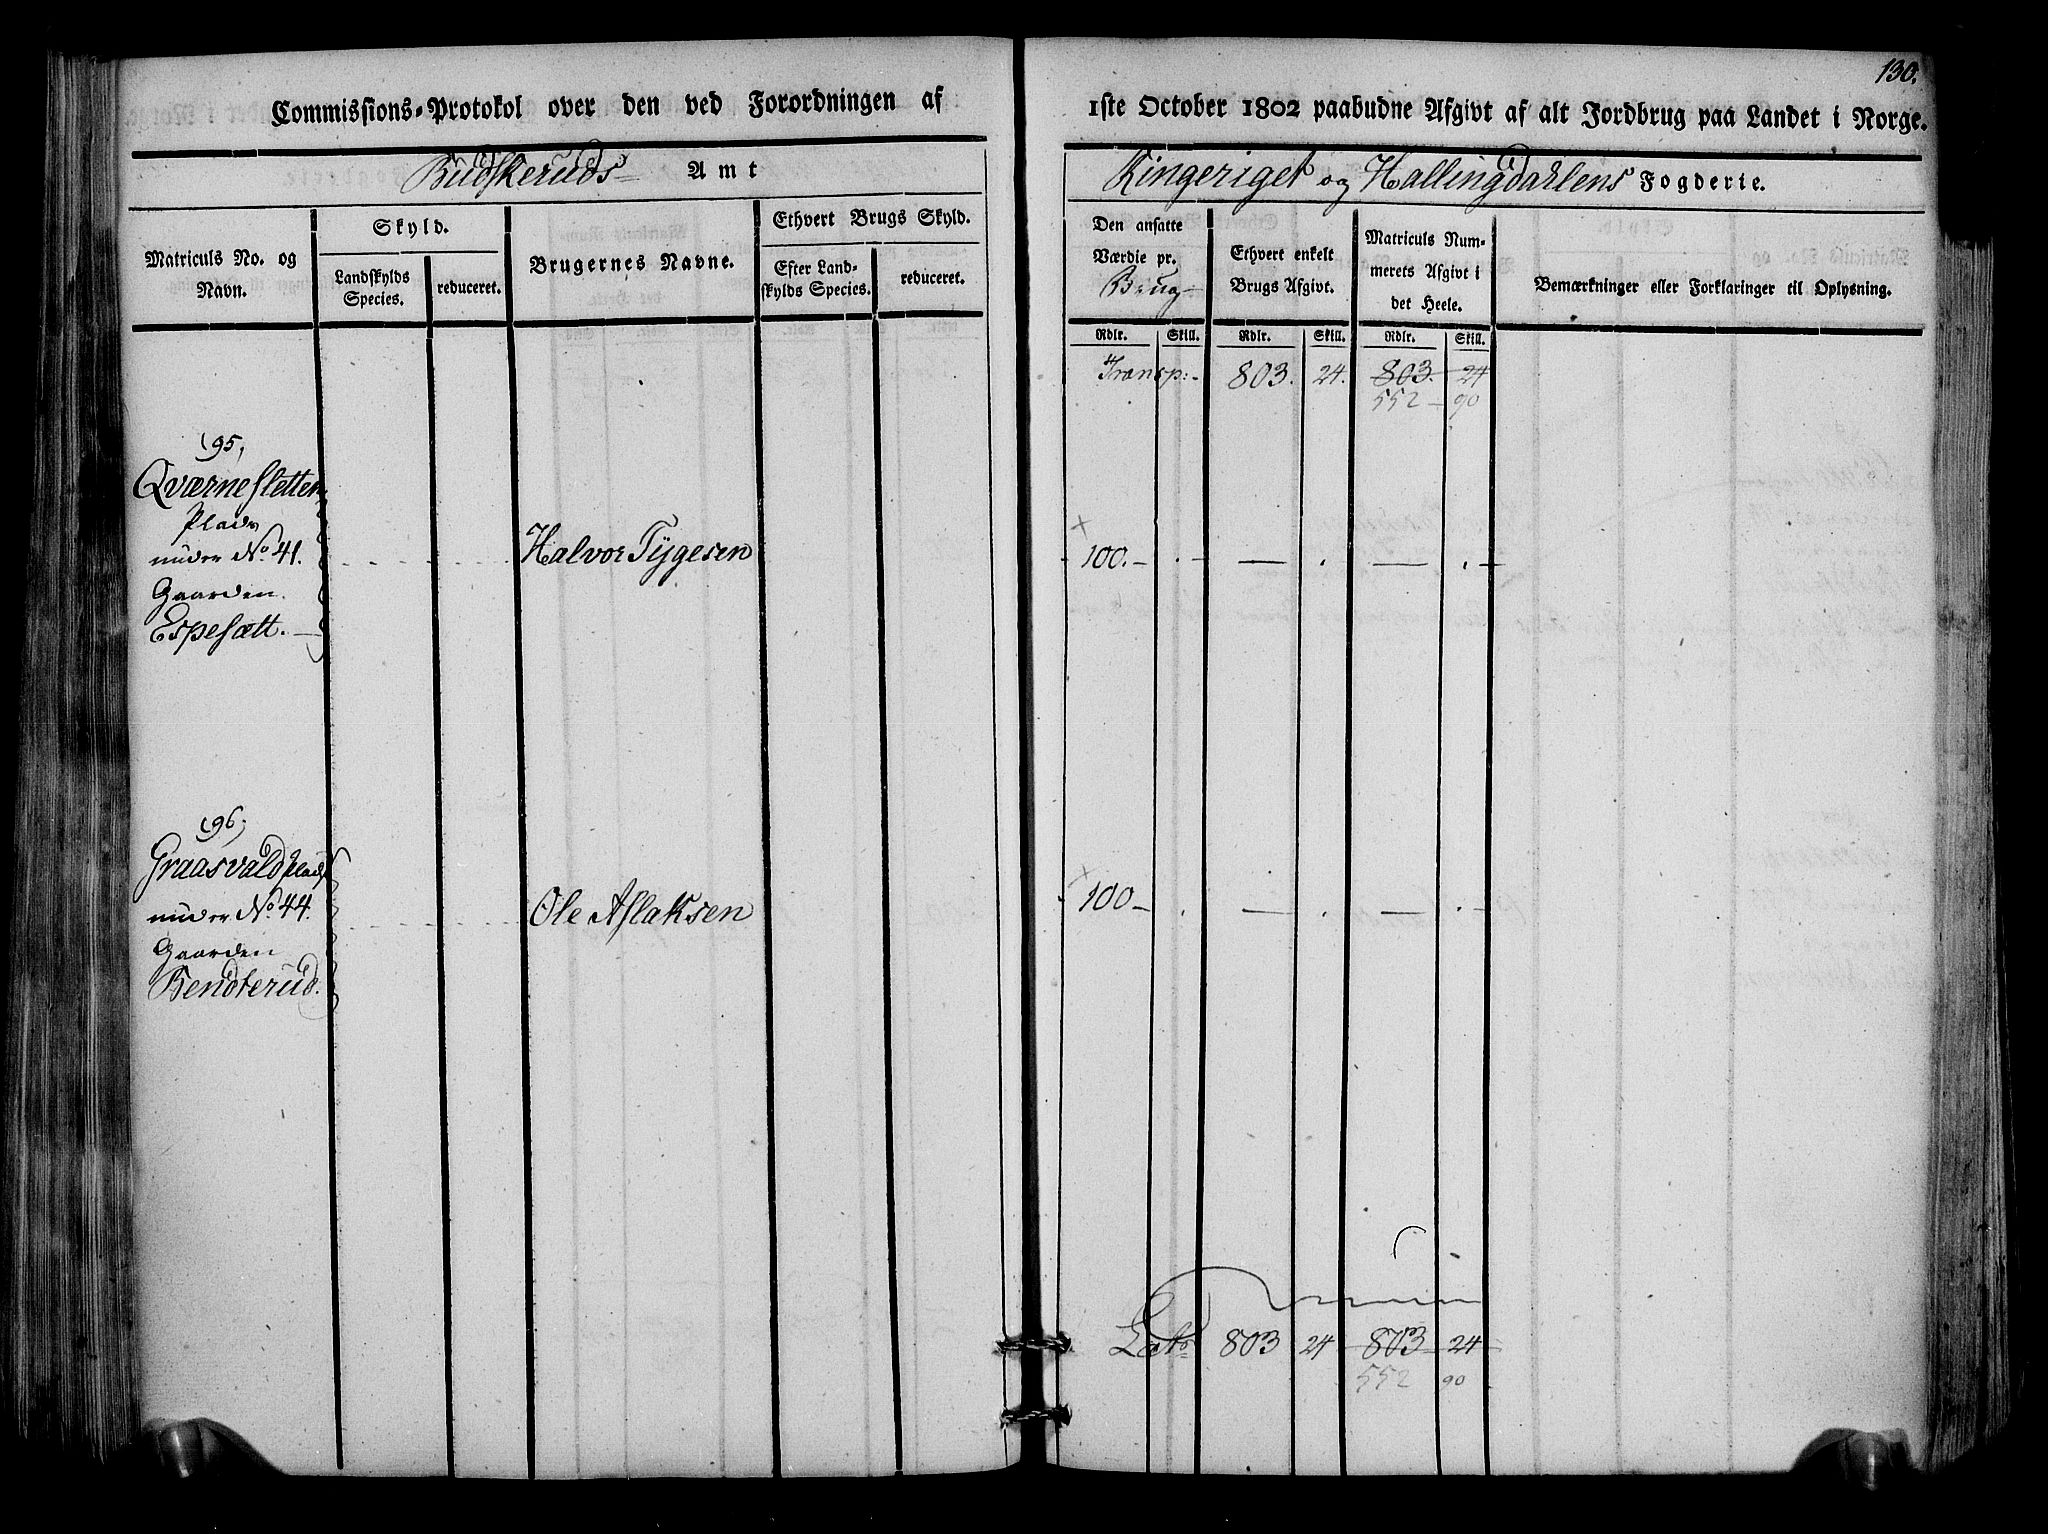 130.
Commissions-Protokol over den ved Forordningen af 1ste October 1802 paabudne Afgivt af alt Jordbrug paa Landet i Norge.
Budskeruds Amt
Ringeriget og Hallingdahlens Fogderie.
Matriculs No. og Navn.
Skyld.
Landskylds Species.
reduceret.
Brugernes Navne.
Ethvert Brugs Skyld.
Efter Landskylds Species.
reduceret.
Den ansatte Værdie pr. Brug
Ethvert enkelt Brugs Afgivt.
Matriculs Nummerets Afgivt i det Heele.
Bemærkninger eller Forklaringer til Oplysning.
Rdlr. Skill. Rdlr. Skill. Rdlr. Skill.
Transp: 803. 24. 803. 24
552 - 90
195,
Qværnesletten
Plads
under No. 41.
Gaarden
Espesætt.
Halvor Tygesen
100. - . - — . — . —
196,
Graasvald Plads
under No. 44.
Gaarden
Bendterud.
Ole Aslaksen
100 - . — . — . —
Lats 803 24 803 24
552 90